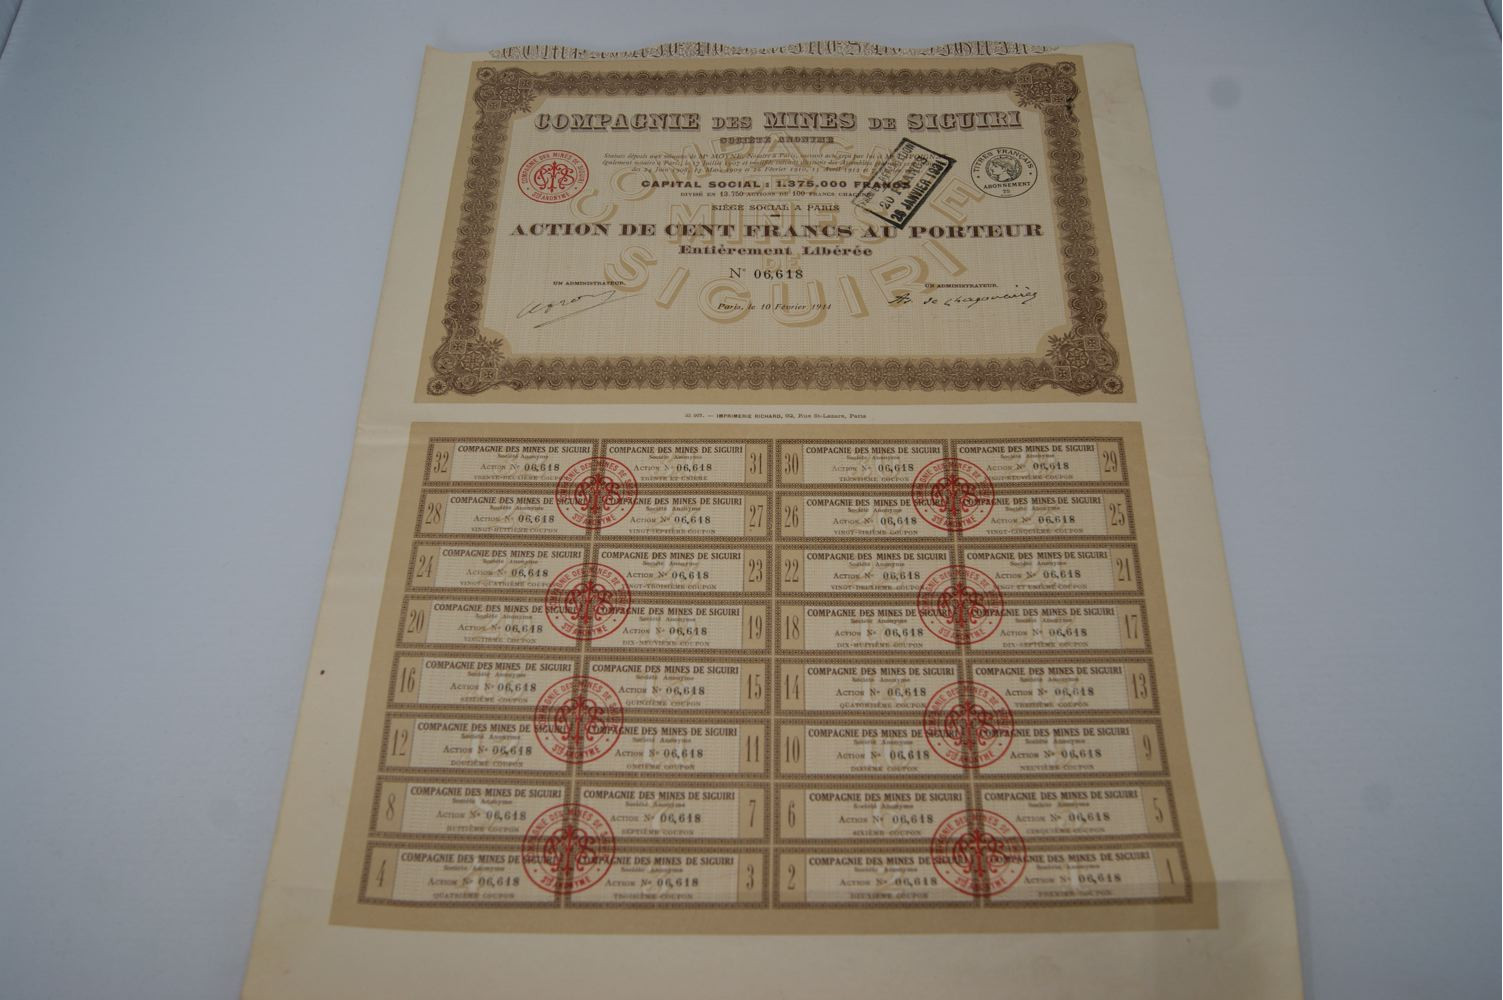 COMPAGNIE DES MINES DE SIGUIRI
SOCIÉTÉ ANONYME
CAPITAL SOCIAL : 1.375.000 FRANCS
DIVISÉ EN 13.750 ACTIONS DE 100 FRANCS CHACUNE
SIÈGE SOCIAL A PARIS
ACTION DE CENT FRANCS AU PORTEUR
Entièrement Libérée
N° 06,618
UN ADMINISTRATEUR.
UN ADMINISTRATEUR.
Paris, le 10 Février 1914
COMPAGNIE DES MINES DE SIGUIRI
Sté ANONYME
TITRES FRANÇAIS
ABONNEMENT
26 JANVIER 1931
COMPAGNIE
MINES
DE
SIGUIRI
IMPRIMERIE RICHARD, 92, Rue St-Lazare, Paris
32 COMPAGNIE DES MINES DE SIGUIRI
Société Anonyme
Action N° 06,618
TRENTE-DEUXIÈME COUPON
COMPAGNIE DES MINES DE SIGUIRI 31
Société Anonyme
Action N° 06,618
TRENTE ET UNIÈME
30 COMPAGNIE DES MINES DE SIGUIRI
Société Anonyme
Action N° 06,618
TRENTIÈME COUPON
COMPAGNIE DES MINES DE SIGUIRI 29
Société Anonyme
Action N° 06,618
VINGT-NEUVIÈME COUPON
28 COMPAGNIE DES MINES DE SIGUIRI
Société Anonyme
Action N° 06,618
VINGT-HUITIÈME COUPON
COMPAGNIE DES MINES DE SIGUIRI 27
Société Anonyme
Action N° 06,618
VINGT-SEPTIÈME COUPON
26 COMPAGNIE DES MINES DE SIGUIRI
Société Anonyme
Action N° 06,618
VINGT-SIXIÈME COUPON
COMPAGNIE DES MINES DE SIGUIRI 25
Société Anonyme
Action N° 06,618
VINGT-CINQUIÈME COUPON
24 COMPAGNIE DES MINES DE SIGUIRI
Société Anonyme
Action N° 06,618
VINGT-QUATRIÈME COUPON
COMPAGNIE DES MINES DE SIGUIRI 23
Société Anonyme
Action N° 06,618
VINGT-TROISIÈME COUPON
22 COMPAGNIE DES MINES DE SIGUIRI
Société Anonyme
Action N° 06,618
VINGT-DEUXIÈME COUPON
COMPAGNIE DES MINES DE SIGUIRI 21
Société Anonyme
Action N° 06,618
VINGT ET UNIÈME COUPON
20 COMPAGNIE DES MINES DE SIGUIRI
Société Anonyme
Action N° 06,618
VINGTIÈME COUPON
COMPAGNIE DES MINES DE SIGUIRI 19
Société Anonyme
Action N° 06,618
DIX-NEUVIÈME COUPON
18 COMPAGNIE DES MINES DE SIGUIRI
Société Anonyme
Action N° 06,618
DIX-HUITIÈME COUPON
COMPAGNIE DES MINES DE SIGUIRI 17
Société Anonyme
Action N° 06,618
DIX-SEPTIÈME COUPON
16 COMPAGNIE DES MINES DE SIGUIRI
Société Anonyme
Action N° 06,618
SEIZIÈME COUPON
COMPAGNIE DES MINES DE SIGUIRI 15
Société Anonyme
Action N° 06,618
QUINZIÈME COUPON
14 COMPAGNIE DES MINES DE SIGUIRI
Société Anonyme
Action N° 06,618
QUATORZIÈME COUPON
COMPAGNIE DES MINES DE SIGUIRI 13
Société Anonyme
Action N° 06,618
TREIZIÈME COUPON
12 COMPAGNIE DES MINES DE SIGUIRI
Société Anonyme
Action N° 06,618
DOUZIÈME COUPON
COMPAGNIE DES MINES DE SIGUIRI 11
Société Anonyme
Action N° 06,618
ONZIÈME COUPON
10 COMPAGNIE DES MINES DE SIGUIRI
Société Anonyme
Action N° 06,618
DIXIÈME COUPON
COMPAGNIE DES MINES DE SIGUIRI 9
Société Anonyme
Action N° 06,618
NEUVIÈME COUPON
8 COMPAGNIE DES MINES DE SIGUIRI
Société Anonyme
Action N° 06,618
HUITIÈME COUPON
COMPAGNIE DES MINES DE SIGUIRI 7
Société Anonyme
Action N° 06,618
SEPTIÈME COUPON
6 COMPAGNIE DES MINES DE SIGUIRI
Société Anonyme
Action N° 06,618
SIXIÈME COUPON
COMPAGNIE DES MINES DE SIGUIRI 5
Société Anonyme
Action N° 06,618
CINQUIÈME COUPON
4 COMPAGNIE DES MINES DE SIGUIRI
Société Anonyme
Action N° 06,618
QUATRIÈME COUPON
COMPAGNIE DES MINES DE SIGUIRI 3
Société Anonyme
Action N° 06,618
TROISIÈME COUPON
2 COMPAGNIE DES MINES DE SIGUIRI
Société Anonyme
Action N° 06,618
DEUXIÈME COUPON
COMPAGNIE DES MINES DE SIGUIRI 1
Société Anonyme
Action N° 06,618
PREMIER COUPON